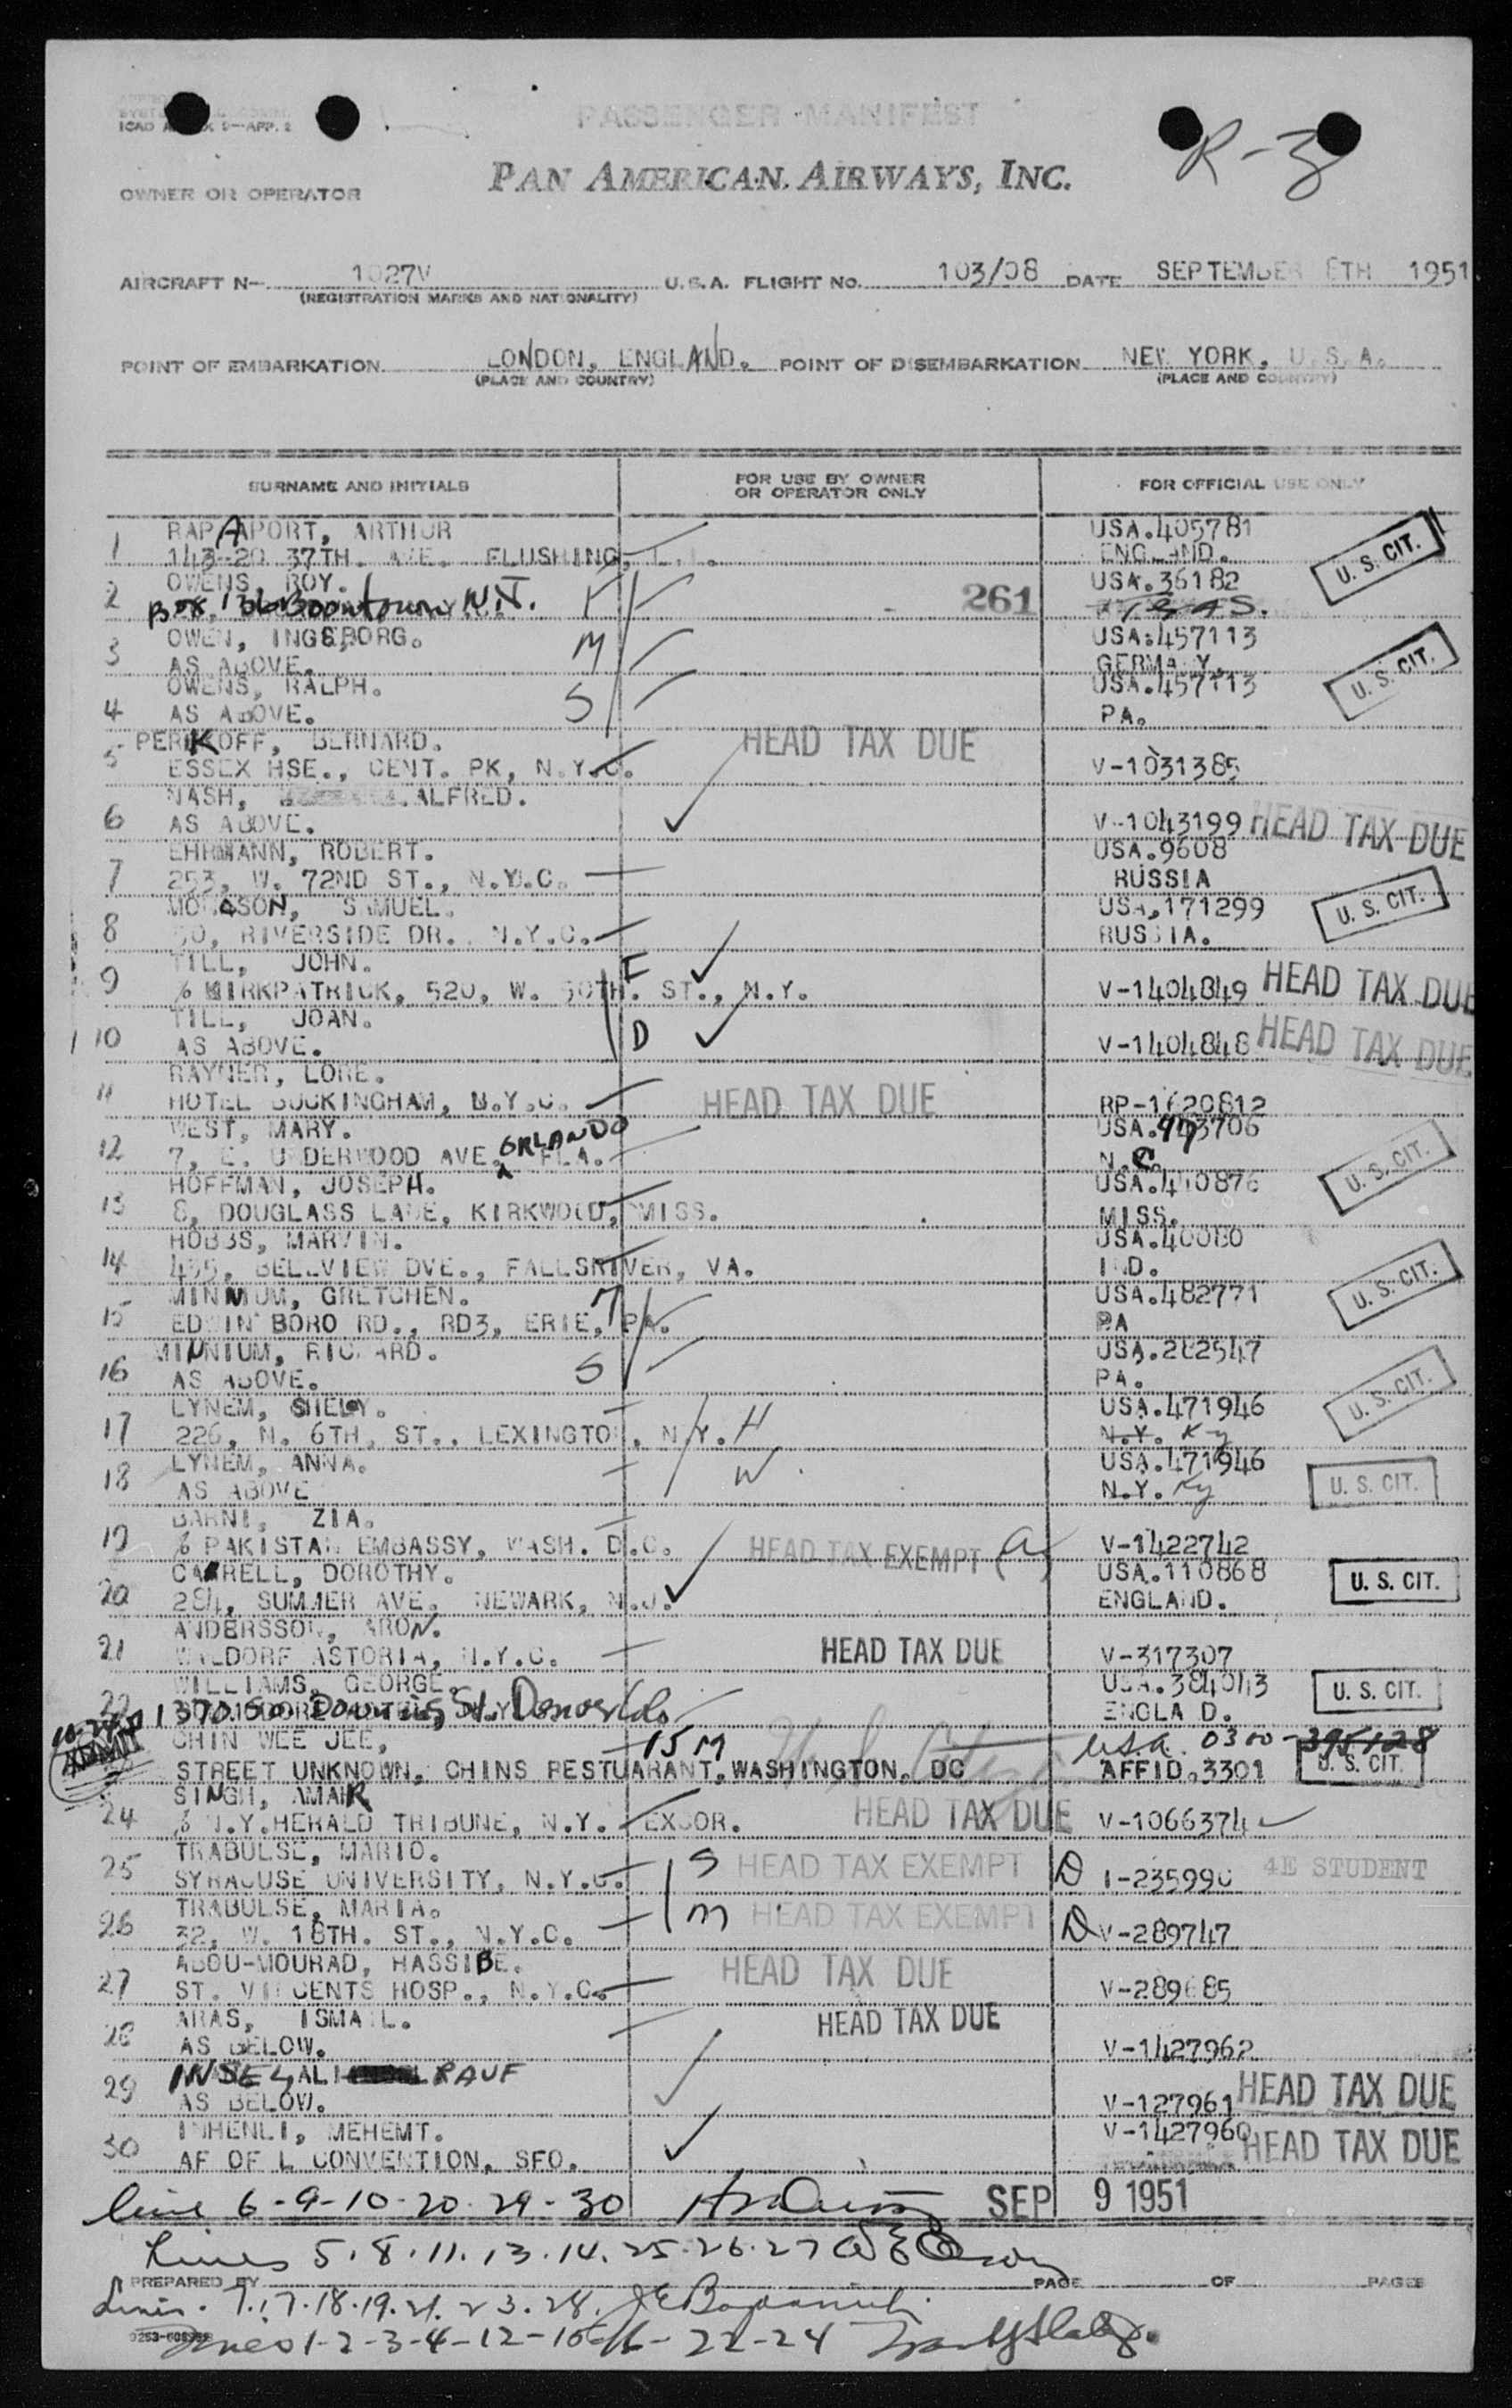 ICAO
9—APP. 2
PASSENGER MANIFEST
R-3
OWNER OR OPERATOR
PAN AMERICAN AIRWAYS, INC.
AIRCRAFT N— 1027V U.S.A. FLIGHT NO. 103/08 DATE SEPTEMBER 8TH 1951
(REGISTRATION MARKS AND NATIONALITY)
POINT OF EMBARKATION LONDON, ENGLAND. POINT OF DISEMBARKATION NEW YORK, U.S.A.
(PLACE AND COUNTRY) (PLACE AND COUNTRY)
SURNAME AND INITIALS FOR USE BY OWNER OR OPERATOR ONLY FOR OFFICIAL USE ONLY
RAPAPORT, ARTHUR USA.405781
1 143-20 37TH. AVE. FLUSHING, L.I. ENGLAND. U. S. CIT.
OWENS, ROY. USA.36182
2 Box 136 Boontown N.J. F 261
OWEN, INGEBORG. M USA.457113
3 AS ABOVE. GERMANY. U. S. CIT.
OWENS, RALPH. S USA.457113
4 AS ABOVE. PA.
PERKOFF, BERNARD. HEAD TAX DUE
5 ESSEX HSE., CENT. PK, N.Y.C. V-1031385
NASH, ALFRED.
6 AS ABOVE. V-1043199 HEAD TAX DUE
EHRMANN, ROBERT. USA.9608
7 253, W. 72ND ST., N.Y.C. RUSSIA
SAMUEL. USA.171299 U. S. CIT.
8 50, RIVERSIDE DR., N.Y.C. RUSSIA.
TILL, JOHN. F
9 % KIRKPATRICK, 520, W. 50TH. ST., N.Y. V-1404849 HEAD TAX DUE
TILL, JOAN.
10 AS ABOVE. D V-1404848 HEAD TAX DUE
RAYNER, LORE.
11 HOTEL BUCKINGHAM, N.Y.C. HEAD TAX DUE RP-1620812
WEST, MARY. ORLANDO
12 7, E. UNDERWOOD AVE. FLA. N.C. U. S. CIT.
HOFFMAN, JOSEPH. USA.410876
13 8, DOUGLASS LANE, KIRKWOOD, MISS. MISS.
HOBBS, MARVIN. USA.40080
14 455, BELLVIEW DVE., FALLSRIVER, VA. IND. U. S. CIT.
MINNIUM, GRETCHEN. M USA.482771
15 EDWIN BORO RD., RD3, ERIE, PA. PA
MINNIUM, RICHARD. USA.282547
16 AS ABOVE. S PA. U. S. CIT.
LYNEM, SHELBY. USA.471946
17 226, N. 6TH. ST., LEXINGTON, N.Y. H N.Y. Ky
LYNEM, ANNA. USA.471946
18 AS ABOVE W N.Y. Ky U. S. CIT.
BARNI, ZIA.
19 % PAKISTAN EMBASSY, WASH. D.C. HEAD TAX EXEMPT (A) V-1422742
CARRELL, DOROTHY. USA.110868
20 284, SUMMER AVE. NEWARK, N.J. ENGLAND. U. S. CIT.
ANDERSSON, ARON.
21 WALDORF ASTORIA, N.Y.C. HEAD TAX DUE V-317307
WILLIAMS, GEORGE. USA.384043
22 1370 So. Downing St. Denver Colo ENGLAND. U. S. CIT.
ADMIT CHIN WEE JEE, 15 M U.S. Citizen U.S.A. 0300-395128
STREET UNKNOWN, CHINS RESTUARANT, WASHINGTON, DC AFFID.3301 U. S. CIT.
SINGH, AMAR
24 % N.Y.HERALD TRIBUNE, N.Y. EXCOR. HEAD TAX DUE V-1066374
TRABULSE, MARIO.
25 SYRACUSE UNIVERSITY, N.Y.C. S HEAD TAX EXEMPT D I-235990 4E STUDENT
TRABULSE, MARIA.
26 32, W. 18TH. ST., N.Y.C. M HEAD TAX EXEMPT D V-289747
ABOU-MOURAD, HASSIBE.
27 ST. VINCENTS HOSP., N.Y.C. HEAD TAX DUE V-289685
ARAS, ISMAIL.
28 AS BELOW. HEAD TAX DUE V-1427962
INSEL, ALI RAUF
29 AS BELOW. V-127961 HEAD TAX DUE
MEHEMT. V-1427960
30 AF OF L CONVENTION, SFO. HEAD TAX DUE
line 6-9-10-20-29-30 SEP 9 1951
Lines 5.8.11.13.14.25.26.27
PREPARED BY PAGE OF PAGES
Lines. 7.17.18.19.21.23.28.
Lines 1-2-3-4-12-15-16-22-24